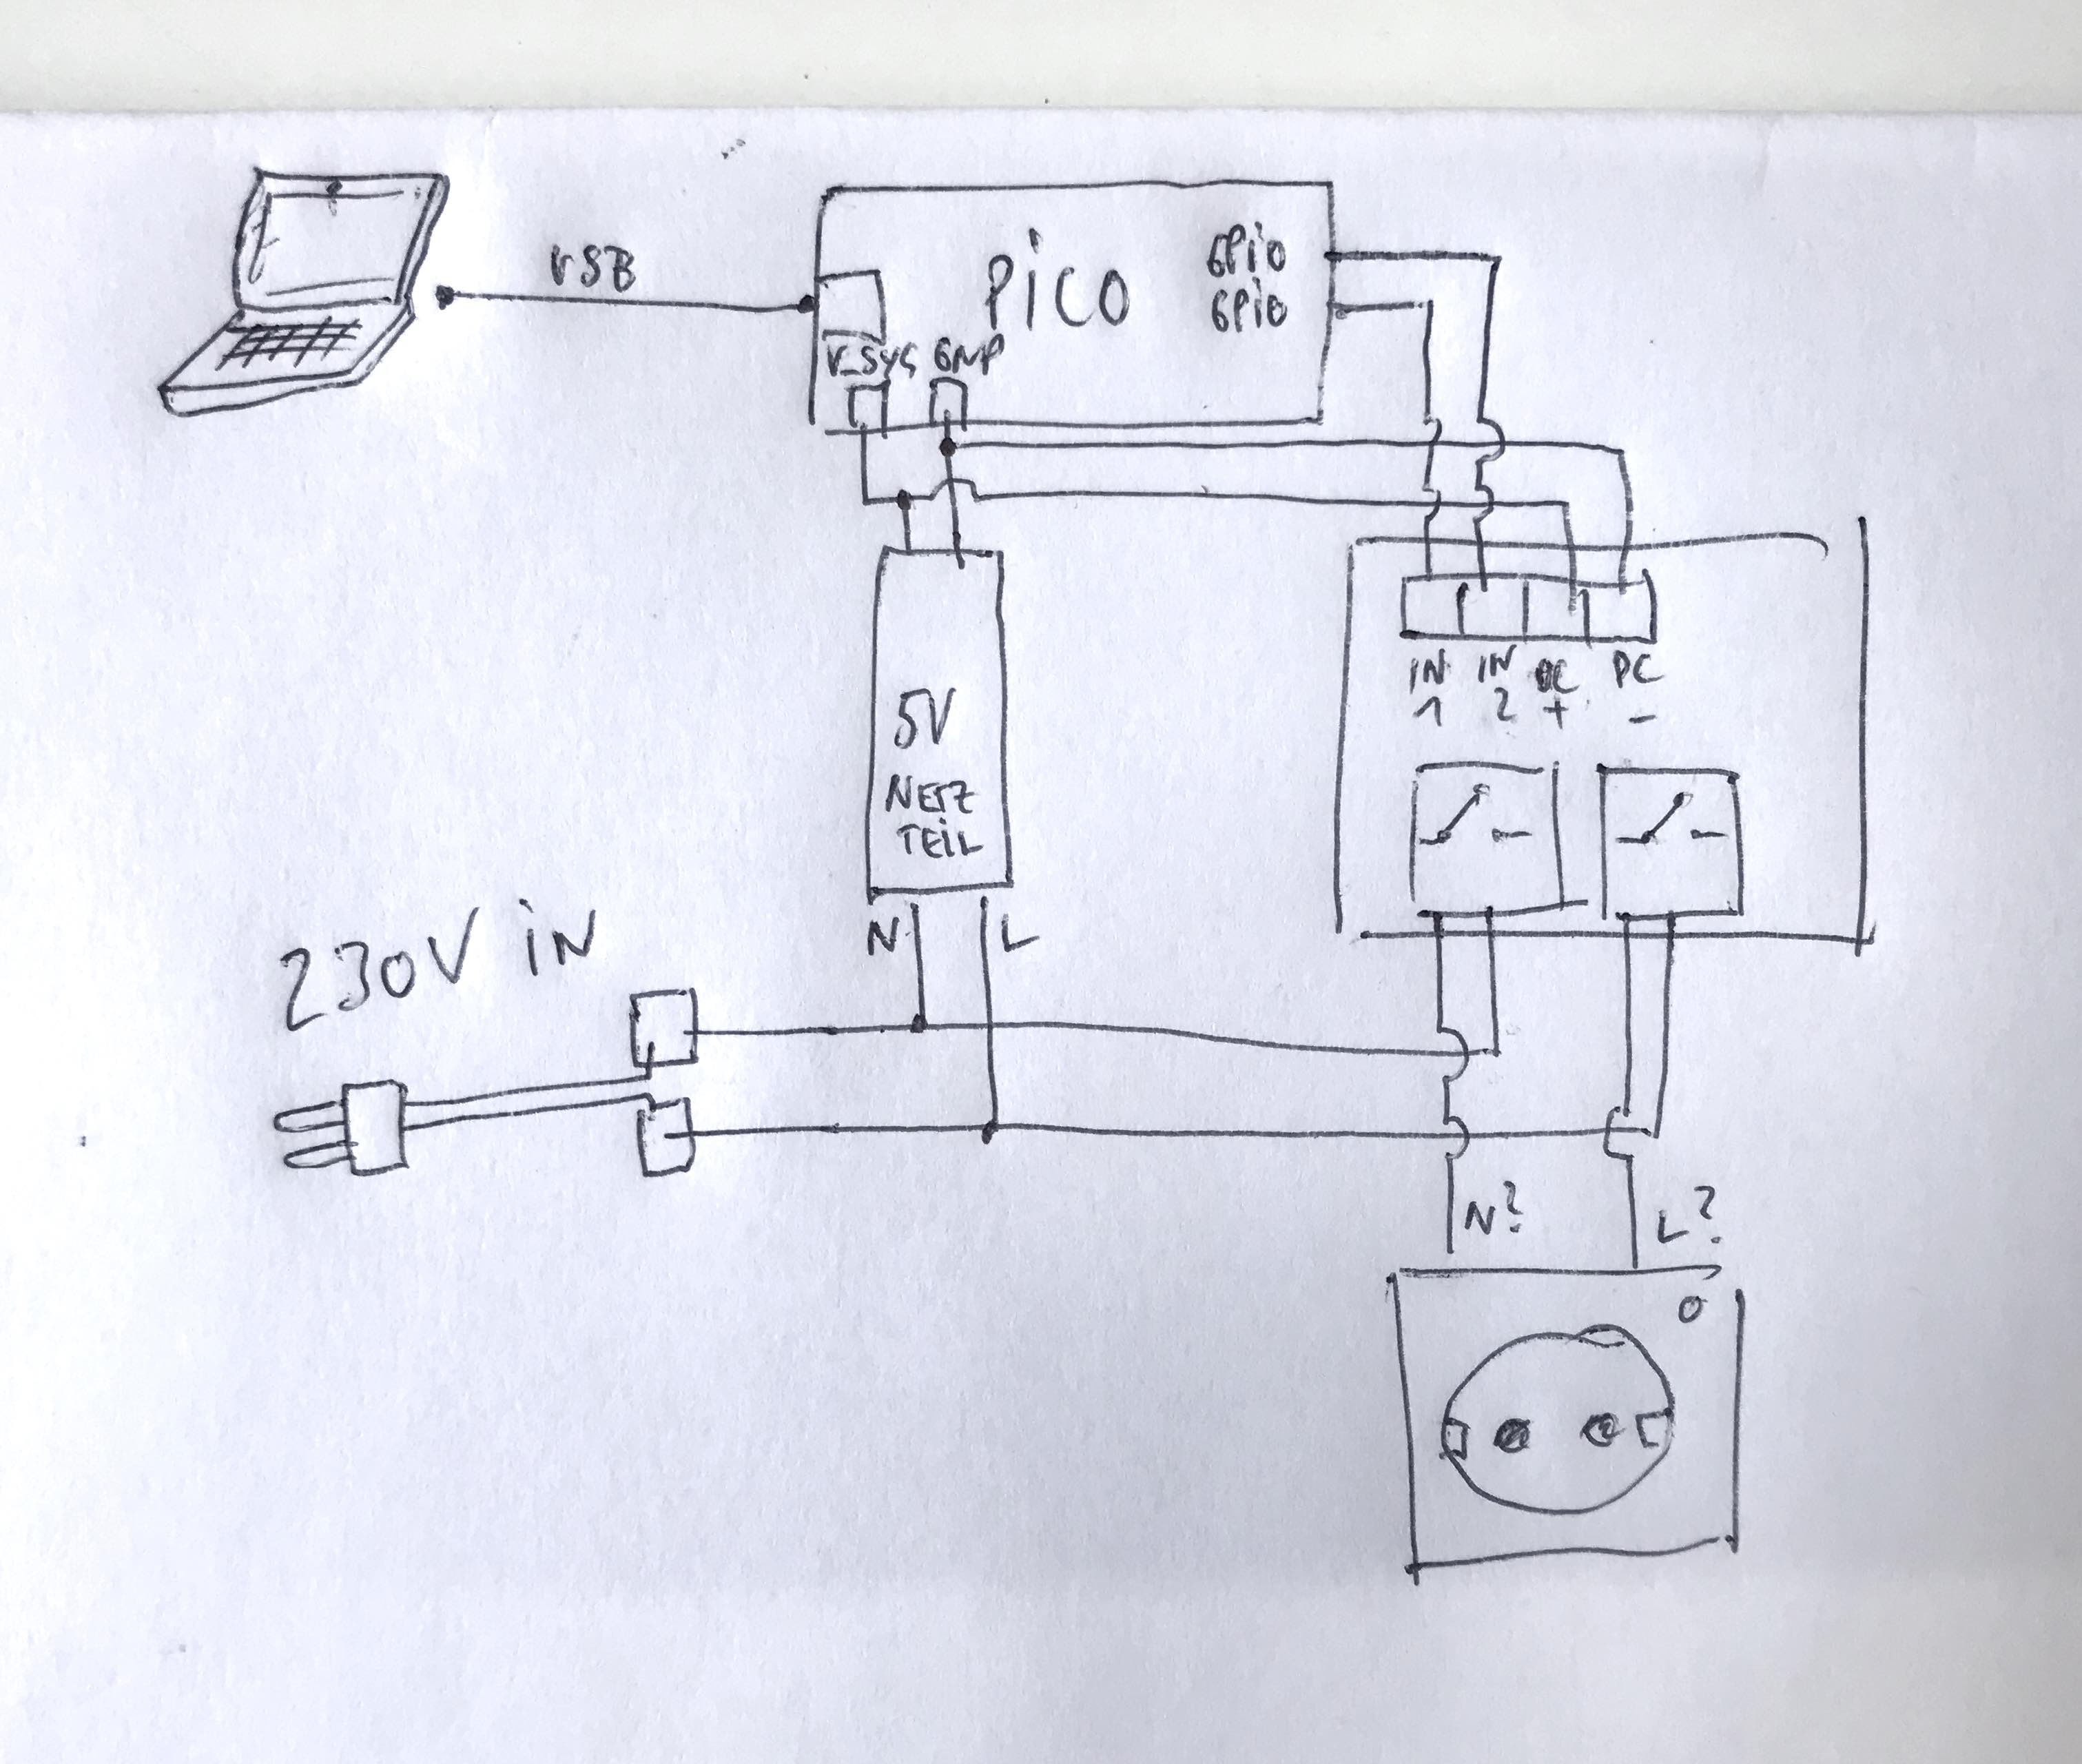 USB
PiCO
GPiO
GPiO
V_SYS GND
IN 1
IN 2
DC +
DC -
5V
NETZ
TEiL
N
L
230V iN
N?
L?